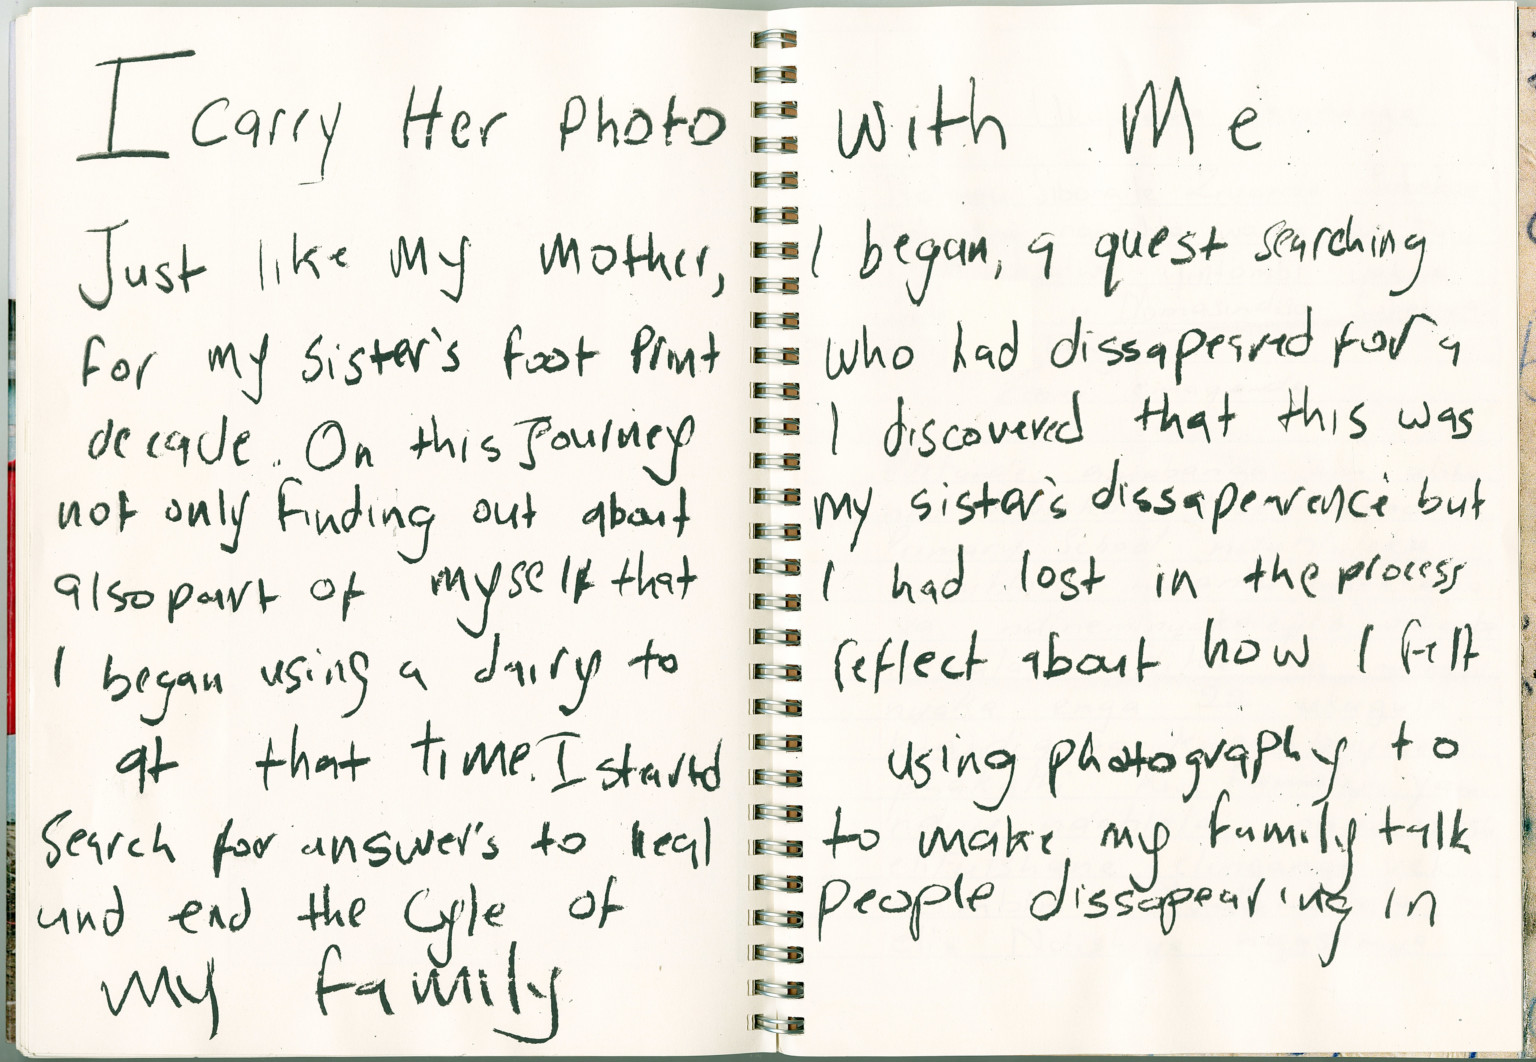 I Carry Her Photo with Me
Just like My Mother, I began, a quest searching
for my sister's foot print who had dissapeared for a
decade. On this Journey I discovered that this was
not only finding out about my sister's dissapearence but
also part of myself that I had lost in the process
I began using a dairy to reflect about how I felt
at that time. I started using photography to
Search for answer's to heal to make my family talk
and end the Cyle of people dissapearing in
my family